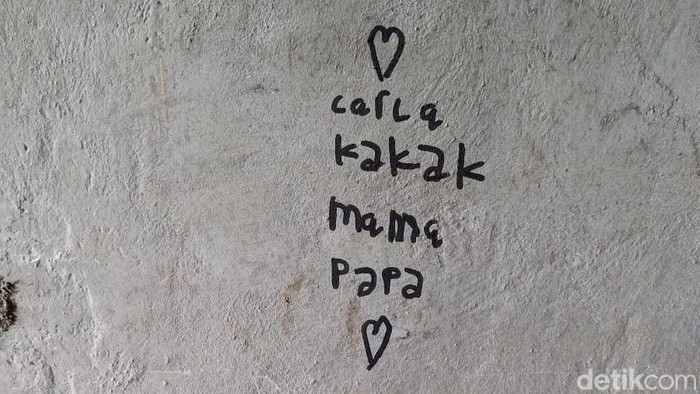 carla
kakak
mama
papa
detikcom